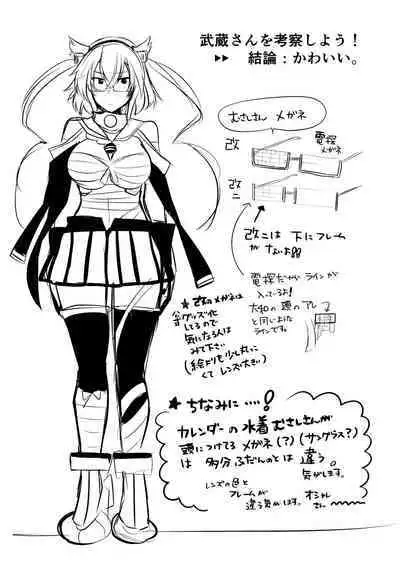 武蔵さんを考察しよう！
▶▶ 結論：かわいい。
むさしさん メガネ
改
電探
メガネ
改二
改二は 下にフレーム
が ないよ
電探だから ラインが
入ってるよ！
大和の頭のアレ
と同じような
ラインです。
★改のメガネは
グッズ化
してるので
気になる人は
みて下さい
(絵よりも少し丸っこ
くて レンズ大きい)
★ ちなみに ‥‥!
カレンダーの 水着 むさしさんが
頭につけてる メガネ(?) (サングラス?)
は 多分 ふだんのとは 違う
気がします。
レンズの色と
フレームが
違う気がします。
オシャレ
さん